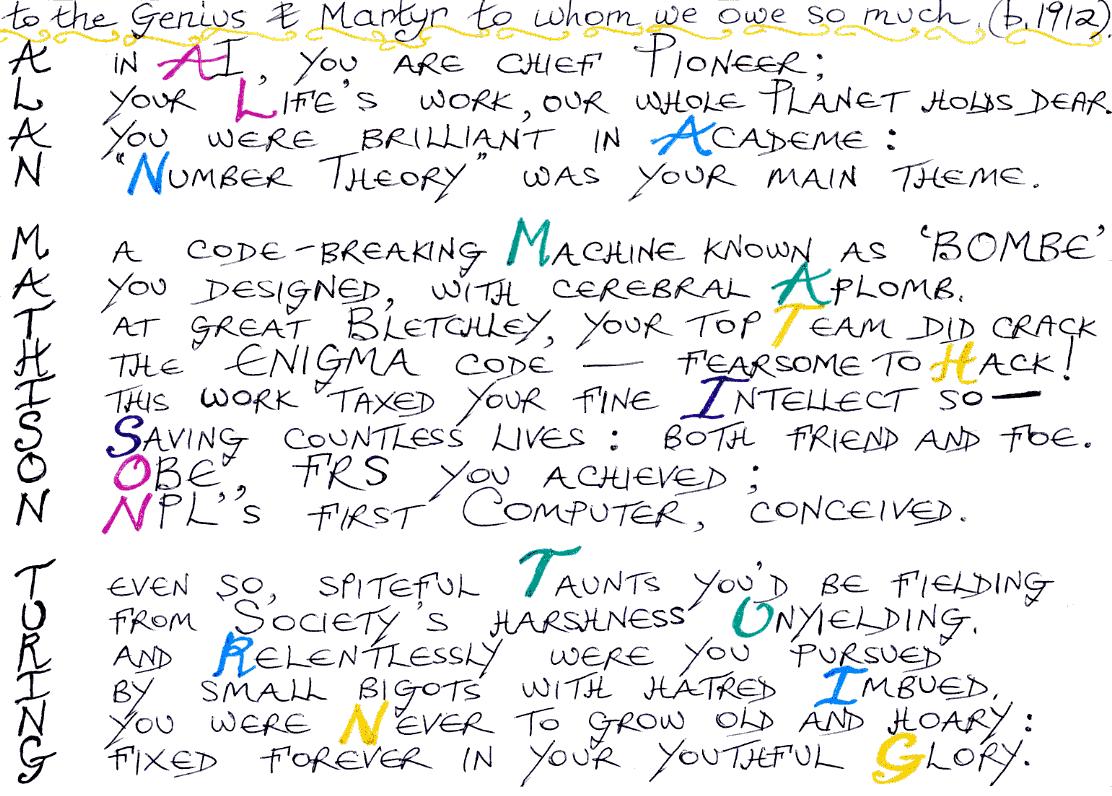 to the Genius & Martyr to whom we owe so much. (b. 1912).
A IN AI, YOU ARE CHIEF PIONEER;
L YOUR LIFE'S WORK, OUR WHOLE PLANET HOLDS DEAR.
A YOU WERE BRILLIANT IN ACADEME:
N "NUMBER THEORY" WAS YOUR MAIN THEME.
M A CODE-BREAKING MACHINE KNOWN AS 'BOMBE'
A YOU DESIGNED, WITH CEREBRAL APLOMB.
T AT GREAT BLETCHLEY, YOUR TOP TEAM DID CRACK
H THE ENIGMA CODE — FEARSOME TO HACK!
I THIS WORK TAXED YOUR FINE INTELLECT SO—
S SAVING COUNTLESS LIVES: BOTH FRIEND AND FOE.
O OBE, FRS YOU ACHIEVED;
N NPL''S FIRST COMPUTER, CONCEIVED.
T EVEN SO, SPITEFUL TAUNTS YOU'D BE FIELDING
U FROM SOCIETY'S HARSHNESS UNYIELDING.
R AND RELENTLESSLY WERE YOU PURSUED
I BY SMALL BIGOTS WITH HATRED IMBUED.
N YOU WERE NEVER TO GROW OLD AND HOARY:
G FIXED FOREVER IN YOUR YOUTHFUL GLORY.